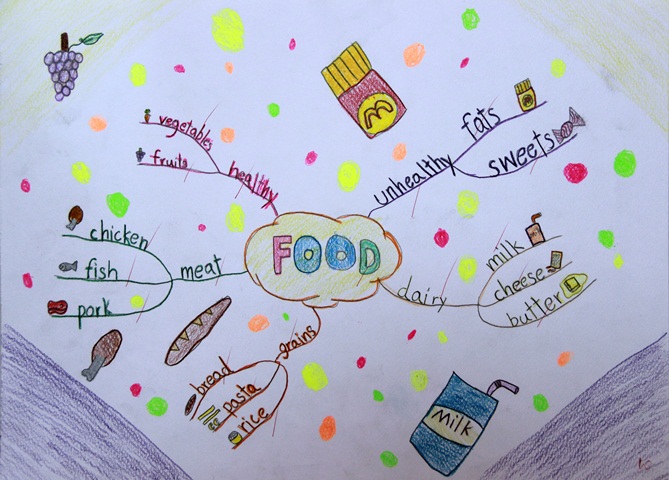 FOOD
healthy
vegetables
fruits
unhealthy
fats
sweets
meat
chicken
fish
pork
dairy
milk
cheese
butter
grains
bread
pasta
rice
MILK